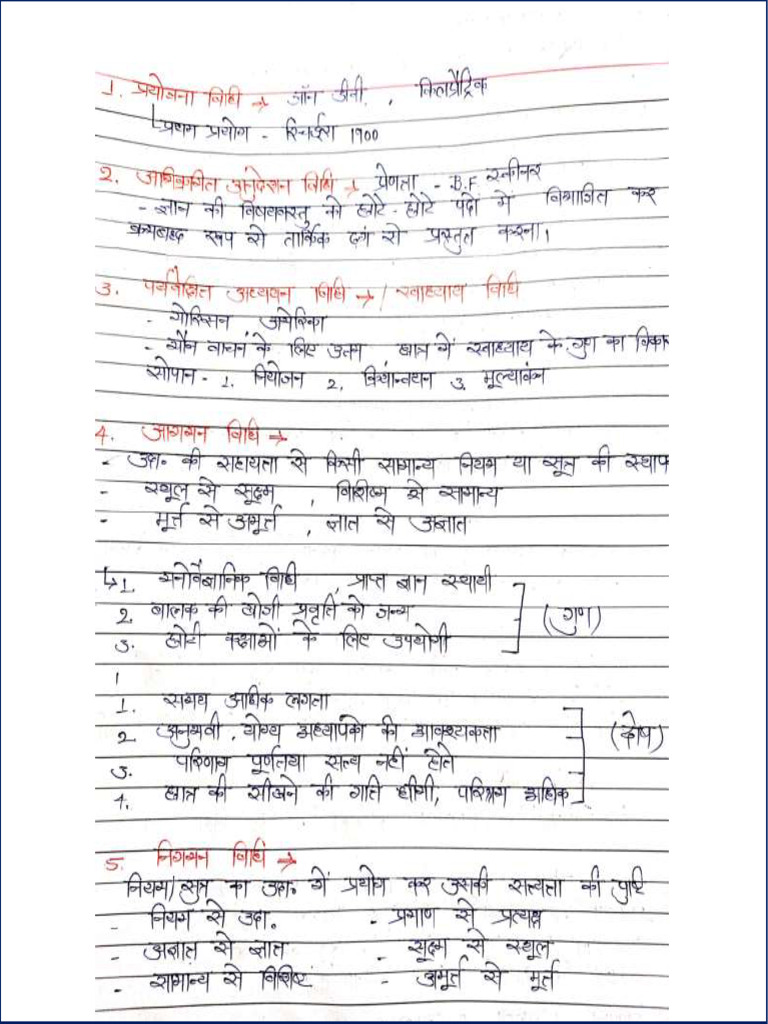 1. प्रयोजना विधि → जॉन डीवी, किलपैट्रिक
प्रथम प्रयोग - रिचर्ड्स 1900
2. अभिक्रमित अनुदेशन विधि → प्रेणता - B.F. स्कीनर
- ज्ञान की विषयवस्तु को छोटे-छोटे पदों में विभाजित कर
क्रमबद्ध रूप से तार्किक ढंग से प्रस्तुत करना।
3. पर्यवेक्षित अध्ययन विधि → / स्वाध्याय विधि
- मोरिसन अमेरिका
- मौन वाचन के लिए उत्तम, छात्र में स्वाध्याय के गुण का विका
सोपान - 1. नियोजन 2. क्रियान्वयन 3. मूल्यांकन
4. आगमन विधि →
- उदा. की सहायता से किसी सामान्य नियम या सूत्र की स्थाप
- स्थूल से सूक्ष्म, विशिष्ट से सामान्य
- मूर्त्त से अमूर्त्त, ज्ञात से अज्ञात
↳ 1. मनोवैज्ञानिक विधि, प्राप्त ज्ञान स्थायी
2. बालक की प्रवृति को जन्म (गुण)
3. छोटी कक्षाओं के लिए उपयोगी
1
1. समय अधिक लगता
2. अनुभवी, योग्य अध्यापको की आवश्यकता (दोष)
3. परिणाम पूर्णतया सत्य नहीं होते
4. छात्र की सीखने की गति धीमी, परिश्रम अधिक
5. निगमन विधि →
नियम/सूत्र का उदा. में प्रयोग कर उसकी सत्यता की पुष्टि
- नियम से उदा. - प्रमाण से प्रत्यक्ष
- अज्ञात से ज्ञात - सूक्ष्म से स्थूल
- सामान्य से विशिष्ट - अमूर्त्त से मूर्त्त